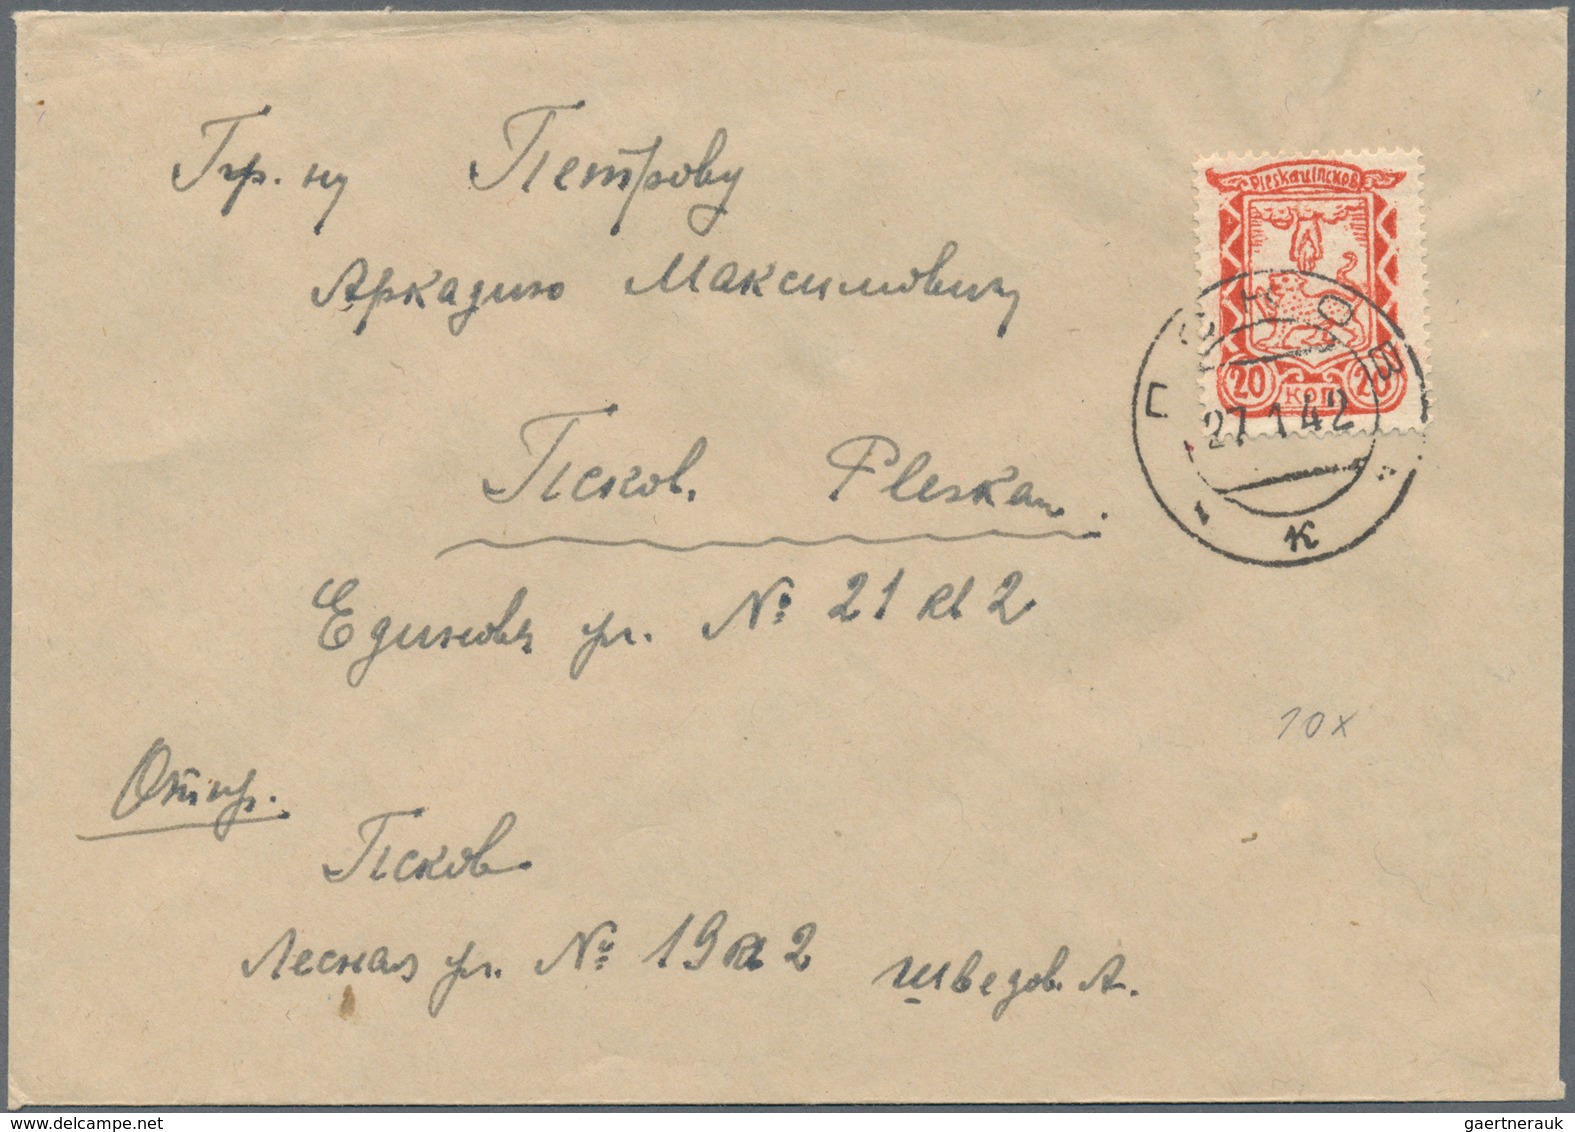 Гр. ну Петрову
Аркадию Максимовичу
Псков. Pleskau.
ул. № 21 кв 2
Отпр.
Псков
Лесная ул. № 19 кв 2 Шведов. А.
Pleskau Псков
20 коп 20
ПСКОВ
27 1 42
к
10x
gaertnerauk